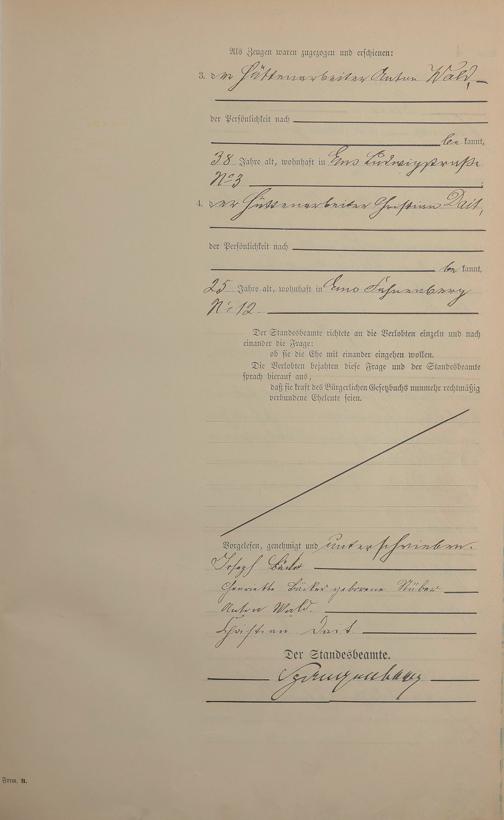 Als Zeugen waren zugezogen und erschienen:
3. der Hüttenarbeiter Anton Wald,
der Persönlichkeit nach
be kannt,
38 Jahre alt, wohnhaft in Ems Ludwigstraße
No 3
4. der Hüttenarbeiter Christian Dait,
der Persönlichkeit nach
be kannt,
25 Jahre alt, wohnhaft in Ems
No 12
Der Standesbeamte richtete an die Verlobten einzeln und nach
einander die Frage:
ob sie die Ehe mit einander eingehen wollen.
Die Verlobten bejahten diese Frage und der Standesbeamte
sprach hierauf aus,
daß sie kraft des Bürgerlichen Gesetzbuchs nunmehr rechtmäßig
verbundene Eheleute seien.
Vorgelesen, genehmigt und unterschrieben.
Joseph Bäcker
Henriette Bäcker geborene Stüber
Anton Wald.
Christian Dait
Der Standesbeamte.
Form. B.